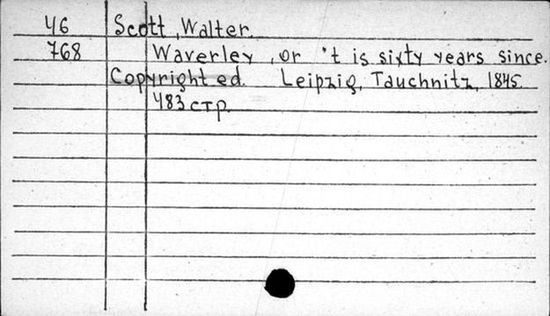 46 Scott, Walter.
768 Waverley, or 't is sixty years since.
Copyright ed. Leipzig, Tauchnitz, 1845.
483 стр.